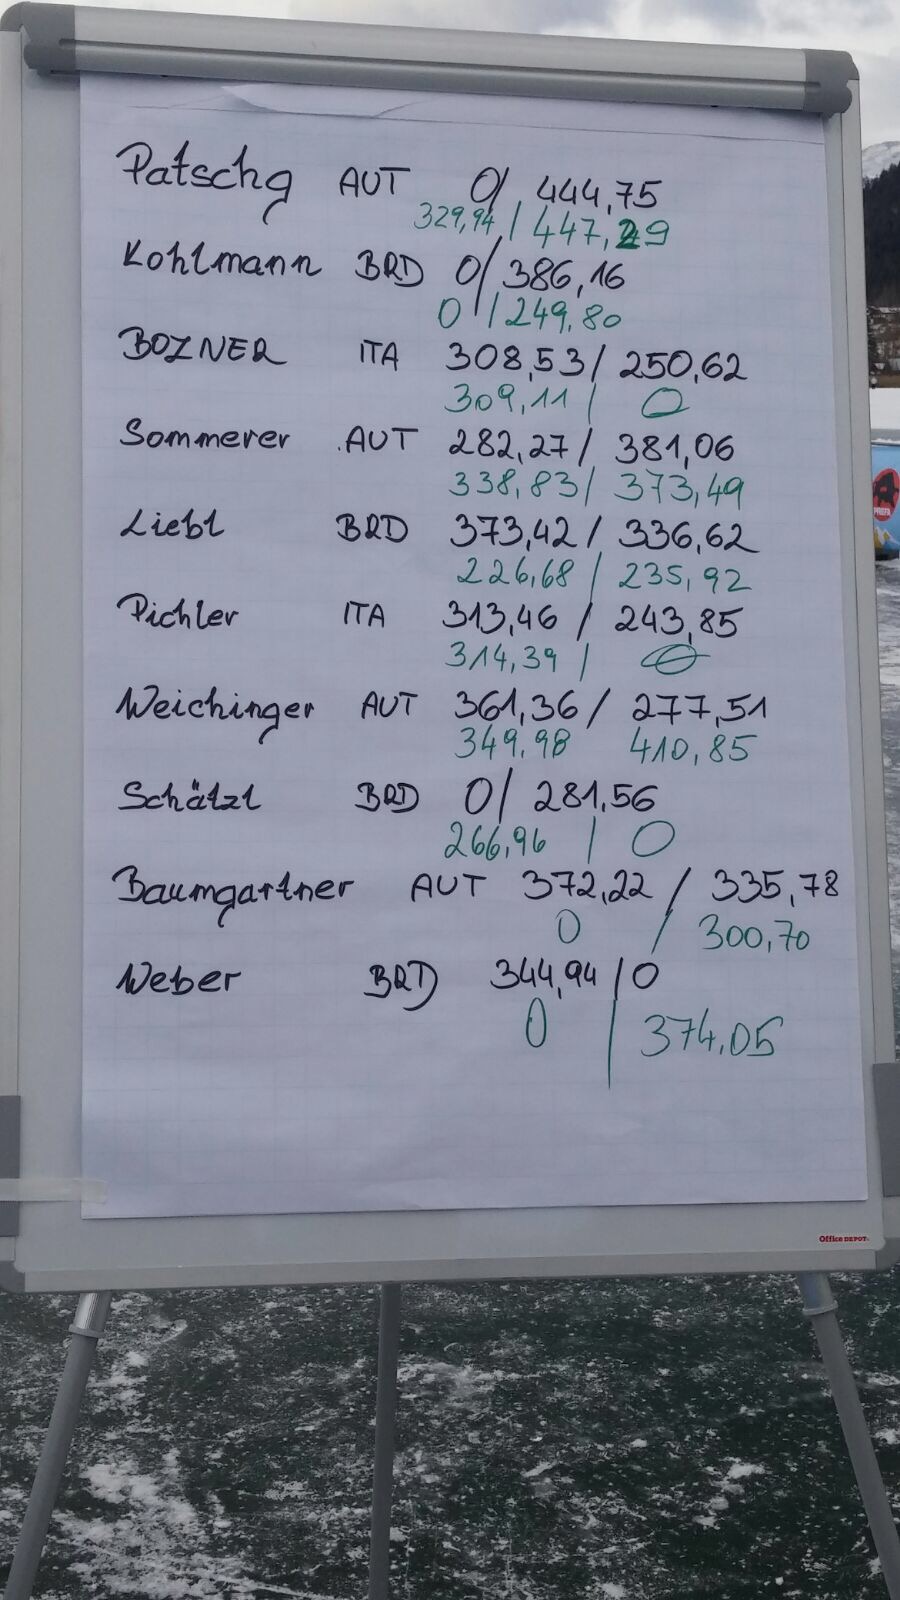 Patschg AUT 0/ 444,75
329,94 / 447,29
Kohlmann BRD 0/ 386,16
0 / 249,80
BOZNER ITA 308,53 / 250,62
309,11 / 0
Sommerer AUT 282,27 / 381,06
338,83 / 373,49
Liebl BRD 373,42 / 336,62
226,68 / 235,92
Pichler ITA 313,46 / 243,85
314,39 / 0
Weichinger AUT 361,36 / 277,51
349,98 410,85
Schätzl BRD 0/ 281,56
266,96 / 0
Baumgartner AUT 372,22 / 335,78
0 / 300,70
Weber BRD 344,94 / 0
0 / 374,05
PREFA
Office DEPOT